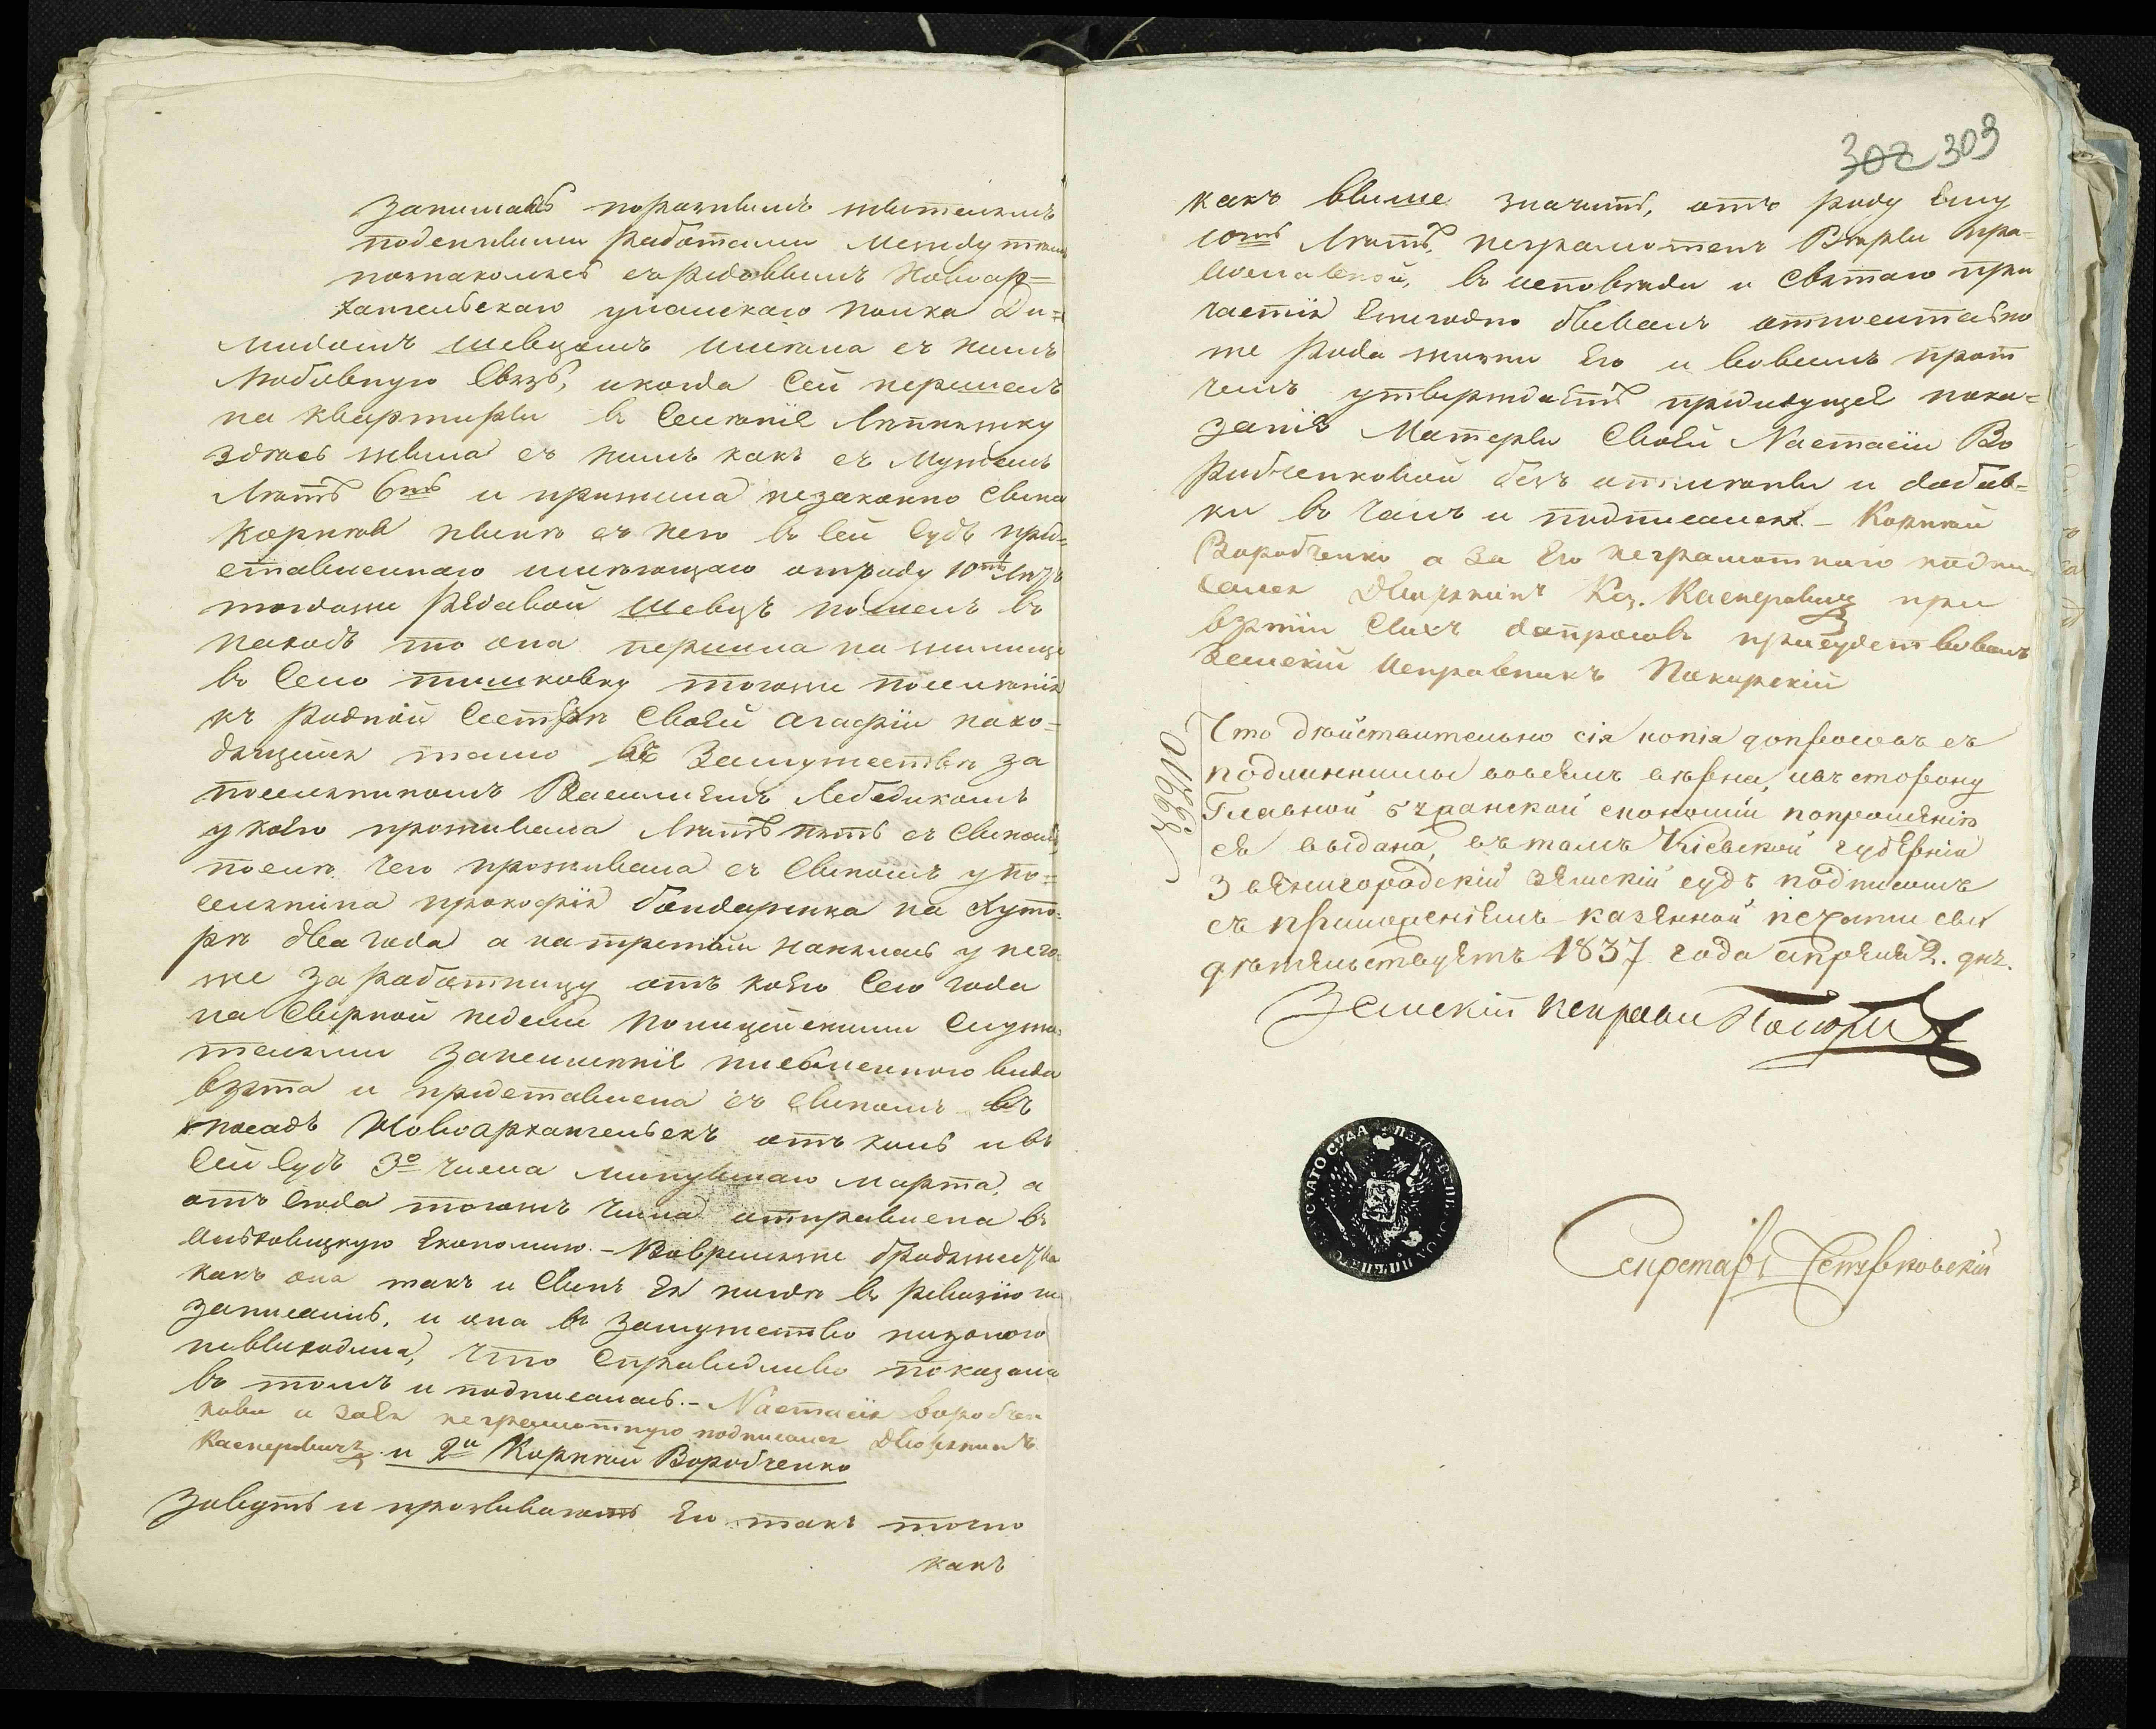 занималась поразнымъ жительямъ
поденными работами между тѣмъ
познакомясь съ рядовымъ Новоар=
хангельскаго уланскаго полка Ди=
мидомъ Шевцомъ имѣла съ нимъ
любовную связь, и когда сей перешелъ
на квартиры в Селѣніе Липняжку
здѣсь жила съ нимъ какъ съ мужемъ
лѣтъ 6ть и прижила незаконно сына
Корнѣя нынѣ съ нею в сей Судъ пред=
ставленнаго имѣющаго отроду 10ть лѣтъ
когдаже рядовой Шевцъ пошелъ въ
походъ то она перешла на жилище
в Село тишковку тогоже поселѣнія
къ родной Сестрѣ своей Агафіи нахо=
дящейся тамо въ замужествѣ за
поселяниномъ Василіемъ Лебедикомъ
у коего проживала лѣтъ пять съ сыномъ,
послѣ чего проживала съ сыномъ у по=
селянина прокофія бондаренка на хуто=
рѣ два года а на третій нанялась у него
же за работницу отъ коего сего года
на Сырной недели полицейскими служи=
телями занеимѣніе письменного вида
взята и представлена съ сыномъ въ
посадъ Новоархангельскъ отъ коль и въ
сей Судъ 3о числа минувшаго марта, а
отъ сюда тогожъ числа отправлена въ
ольховецкую Економію.- Вовремяже бродяжества
какъ она такъ и сынъ Ея нигдѣ в ревизію не
записаны, и она въ замужество низакого
невыходила, что справедливо показала
въ томъ и подписалась.- Настасія воробчен
кова а заея неграмотную подписался Дворянинъ
Касперовичъ и 2й Корнѣй Воробченко
Зовутъ и прозываютъ Его такъ точно
какъ
302 303
какъ выше значитъ, отъ роду Ему
10ть лѣтъ, неграмотенъ Вѣры пра=
вославной, въ исповѣди и святаго при
частія Ежегодно бывалъ относительно
же рода жизни Его и вовсемъ прот
чемъ утверждаетъ предидущее пока=
заніе Матеры своей Настасіи Во
робченковой безъ отмѣны и добав=
ки въ чемъ и подписался.- Корнѣй
Воробченко а за Его неграмотного подпи
сался Дворянинъ Каз. Касперовичъ при
взятіи сихъ допросовъ присудствовалъ
Земскій Исправникъ Пожарскій
№3210
Что дѣйствительно сія копія допросовъ съ
подлиннымы вовсемъ вѣрна, и въ сторону
Главной экономіи попрошенію
ея выдана, въ томъ Кіевской губерніи
Звенигородскій земскій судъ подписомъ
съ приложеніемъ казенной печати сви
дѣтельствуетъ 1837 года апреля 2. дня.
Земскій Исправн
Секретарь